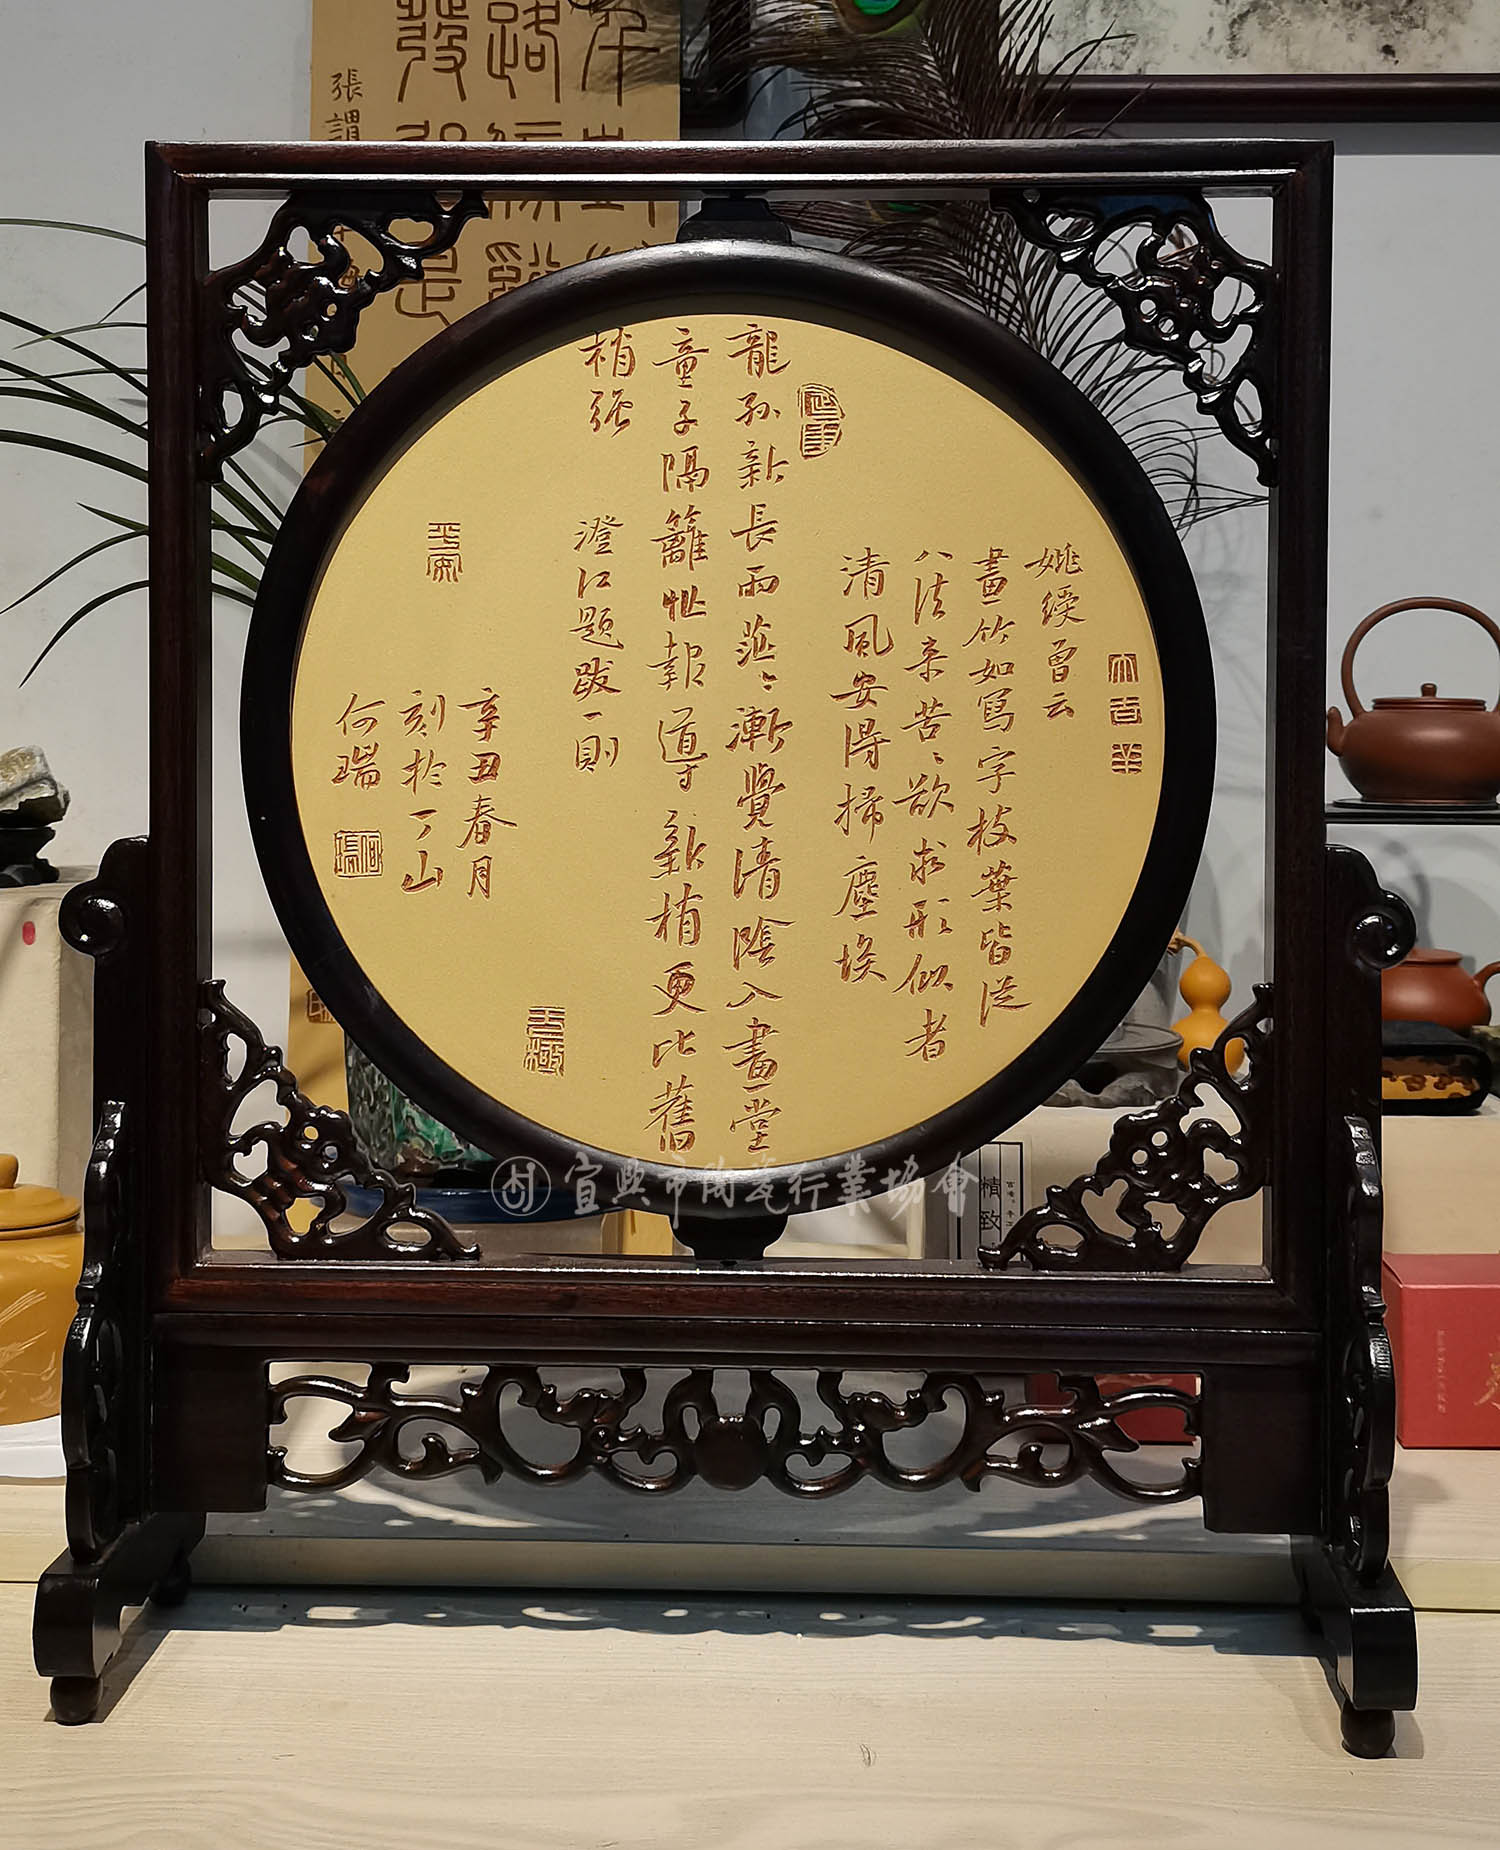 姚綬曾云
畫竹如寫字枝葉皆從
八法来苦苦欲求形似者
清風安得掃塵埃
龍孙新長雨茫茫漸覺清陰入畫堂
童子隔籬忙報道新梢更比舊
梢强
澄江题跋一則
辛丑春月
刻於丁山
何瑞
何瑞
宜興市陶瓷行業協會
張謂
精致